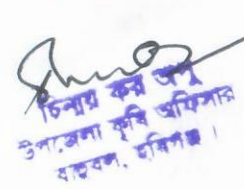 চিন্ময় কর অপু
উপজেলা কৃষি অফিসার
বাহুবল, হবিগঞ্জ।